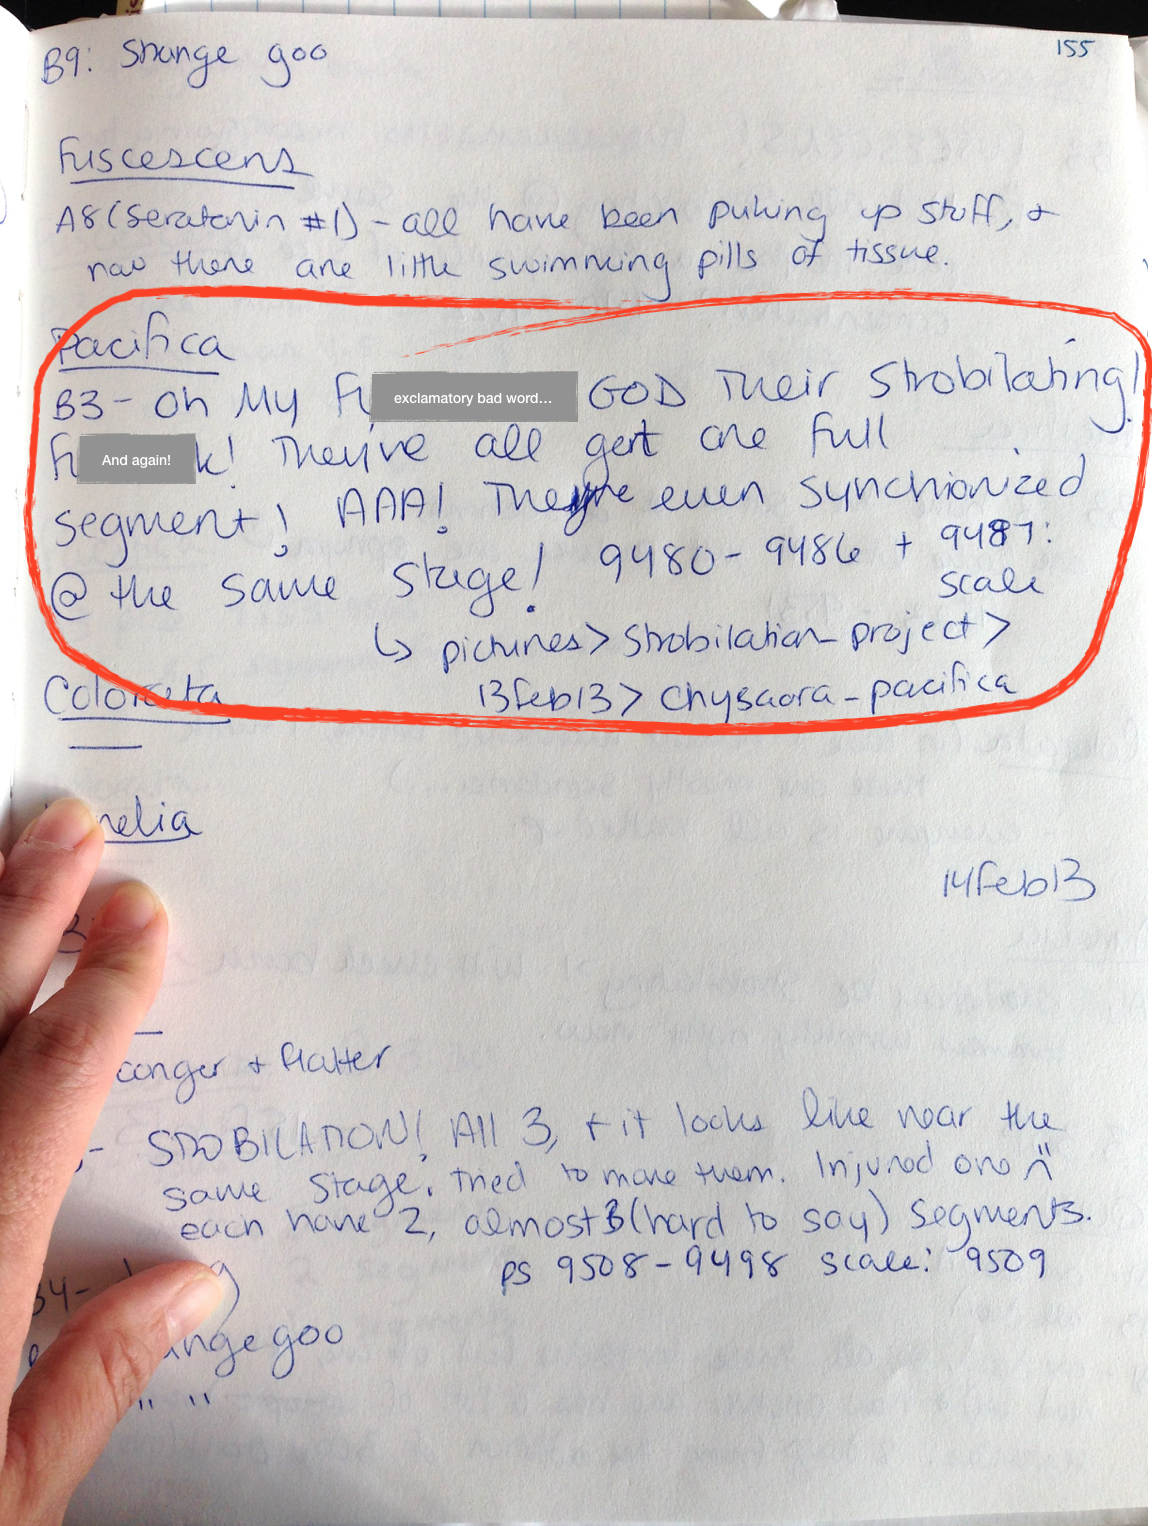 155
B9: Strange goo
Fuscescens
A8 (Seratonin #1) - all have been puking up stuff, +
now there are little swimming pills of tissue.
Pacifica
B3 - Oh My Fu exclamatory bad word... GOD Their Strobilating!
fu And again! k! They've all gert one full
segment! AAA! They're even synchronized
@ the same stage! 9480 - 9486 + 9487:
scale
↳ pictures > Strobilation_project >
13feb13 > Chysaora_pacifica
Colorata
—
melia
14feb13
longer + flatter
- STROBILATION! All 3, + it looks like near the
same stage. tried to move them. Injured one
each have 2, almost 3 (hard to say) segments.
ps 9508 - 9498 scale: 9509
B4 -
ange goo
" "